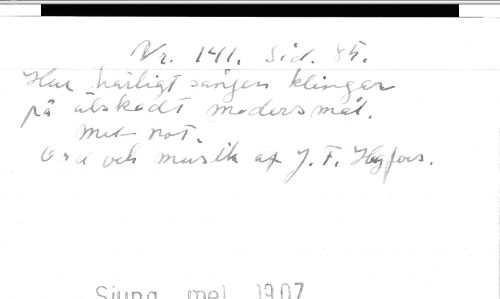 Nr. 141. Sid. 85.
Hur härligt sången klingar
på älskadt modersmål.
met not.
Ord och musik af J. F. Hagfors.
Sjung mel 1907